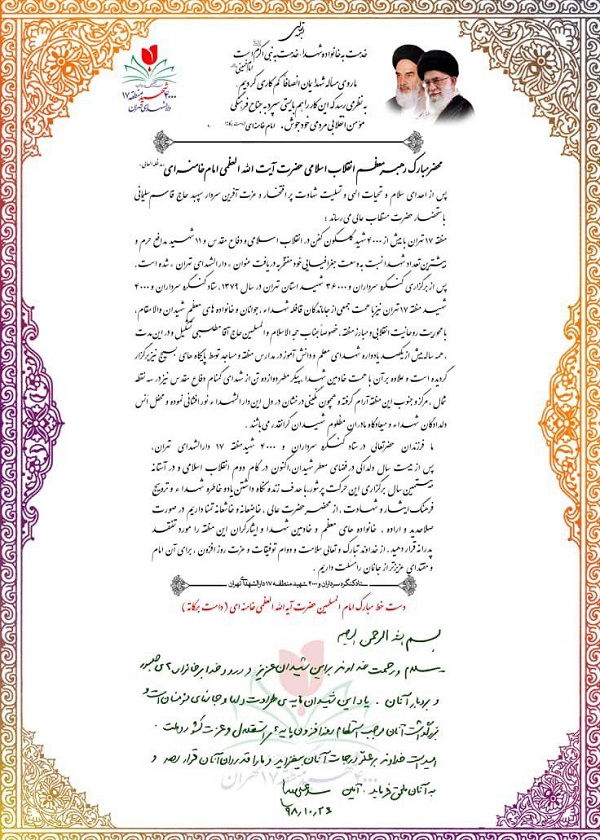 باسمه تعالی
خدمت به خانواده شهدا، خدمت به نبی اکرم است
امام خمینی
ما روی مساله شهدایمان انصافا کم کاری کردیم.
به نظر می رسد که این کار را هم بایستی سپرد به جناح فرهنگی
مؤمن انقلابی مردمی خودجوش. امام خامنه ای (دامت برکاته)
۴۰۰۰ شهید منطقه ۱۷
دارالشهدای تهران
محضر مبارک رهبر معظم انقلاب اسلامی حضرت آیت الله العظمی امام خامنه ای (مد ظله العالی)
پس از اهدای سلام و تحیات الهی و تسلیت شهادت پر افتخار و عزت آفرین سردار سپهبد حاج قاسم سلیمانی
باستحضار حضرت مستطاب عالی می رساند :
منطقه ۱۷ تهران با بیش از ۴۰۰۰ شهید گلگون کفن در انقلاب اسلامی و دفاع مقدس و ۱۱ شهید مدافع حرم و
بیشترین تعداد شهدا نسبت به وسعت جغرافیایی خود مفتخر به دریافت عنوان « دارالشهدای تهران » شده است.
پس از برگزاری کنگره سرداران و ۳۶۰۰۰ شهید استان تهران در سال ۱۳۷۹، ستاد کنگره سرداران و ۴۰۰۰
شهید منطقه ۱۷ تهران نیز با همت جمعی از جاماندگان قافله شهداء، جوانان و خانواده های معظم شهیدان والامقام،
با محوریت روحانیت انقلابی و مبارز منطقه، خصوصاً جناب حجه الاسلام و المسلمین حاج آقا مطلبی تشکیل و در این مدت
همه ساله بیش از یکصد یادواره شهدای معلم و دانش آموز در مدارس منطقه و مساجد توسط پایگاه های بسیج نیز برگزار
گردیده است و علاوه بر آن با همت خادمین شهدا، پیکر مطهر دوازده تن از شهدای گمنام دفاع مقدس نیز در سه نقطه
شمال، مرکز و جنوب این منطقه آرام گرفته و همچون نگینی درخشان در دل این دارالشهداء نورافشانی نموده و محفل انس
دلدادگان شهداء و میعادگاه مادران مظلوم شهیدان گرانقدر می باشند.
ما فرزندان حضرتعالی در ستاد کنگره سرداران و ۴۰۰۰ شهید منطقه ۱۷ دارالشهدای تهران،
پس از بیست سال دلدادگی در فضای معطر شهیدان، اکنون در گام دوم انقلاب اسلامی و در آستانه
بیستمین سال برگزاری این حرکت پرشور با هدف زنده نگاه داشتن یاد و خاطره شهداء و ترویج
فرهنگ ایثار و شهادت، از محضر حضرت عالی، خاضعانه و خاشعانه تمنا داریم در صورت
صلاحدید و اراده، خانواده های معظم و خادمین شهدا و ایثارگران این منطقه را مورد تفقد
پدرانه قرار دهید. از خداوند تبارک و تعالی سلامت و دوام توفیقات و عزت روز افزون، برای آن امام
و مقتدای عزیزتر از جانمان را مسئلت داریم.
ستاد کنگره سرداران و ۴۰۰۰ شهید منطقه ۱۷ دارالشهدای تهران
دست خط مبارک امام المسلمین حضرت آیه الله العظمی خامنه ای ( دامت برکاته )
بسم الله الرحمن الرحیم
سلام و رحمت خداوند بر این شهیدان عزیز و درود خدا بر خانواده های صبور
و بردبار آنان. یاد این شهیدان مایه ی طراوت دلها و جانهای مؤمنان است و
بزرگداشت آنان موجب استحکام روزافزون پایه های استقلال و عزت کشور و ملت.
امید است خداوند بر علو درجات آنان بیفزاید و ما را قدردان آنان قرار دهد و
به آنان ملحق فرماید. آمین سید علی خامنه ای
۹۸،۱۰،۲۶
۴۰۰۰ شهید منطقه ۱۷ تهران